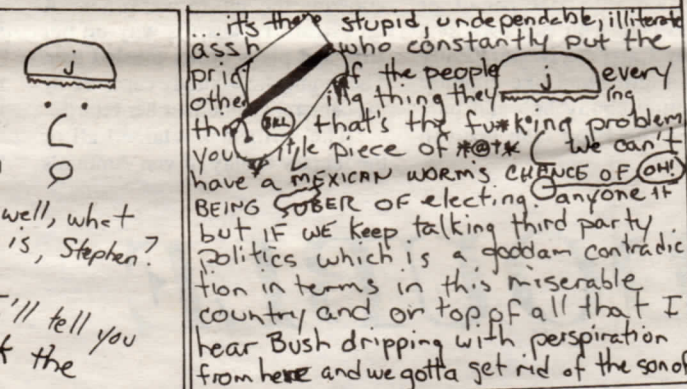 j
well, what
is, Stephen?
I'll tell you
the
...it's these stupid, undependable, illiterate
assh who constantly put the
pric of the people j every
othe ing thing they ing
thin BRL that's the fu*k*ing problem
you tle piece of *@** We can't
have a MEXICAN WORM'S CHANCE OF OH!
BEING SOBER OF electing anyone if
but IF WE keep talking third party
politics which is a goddam contradic
tion in terms in this miserable
country and on top of all that I
hear Bush dripping with perspiration
from here and we gotta get rid of the son of